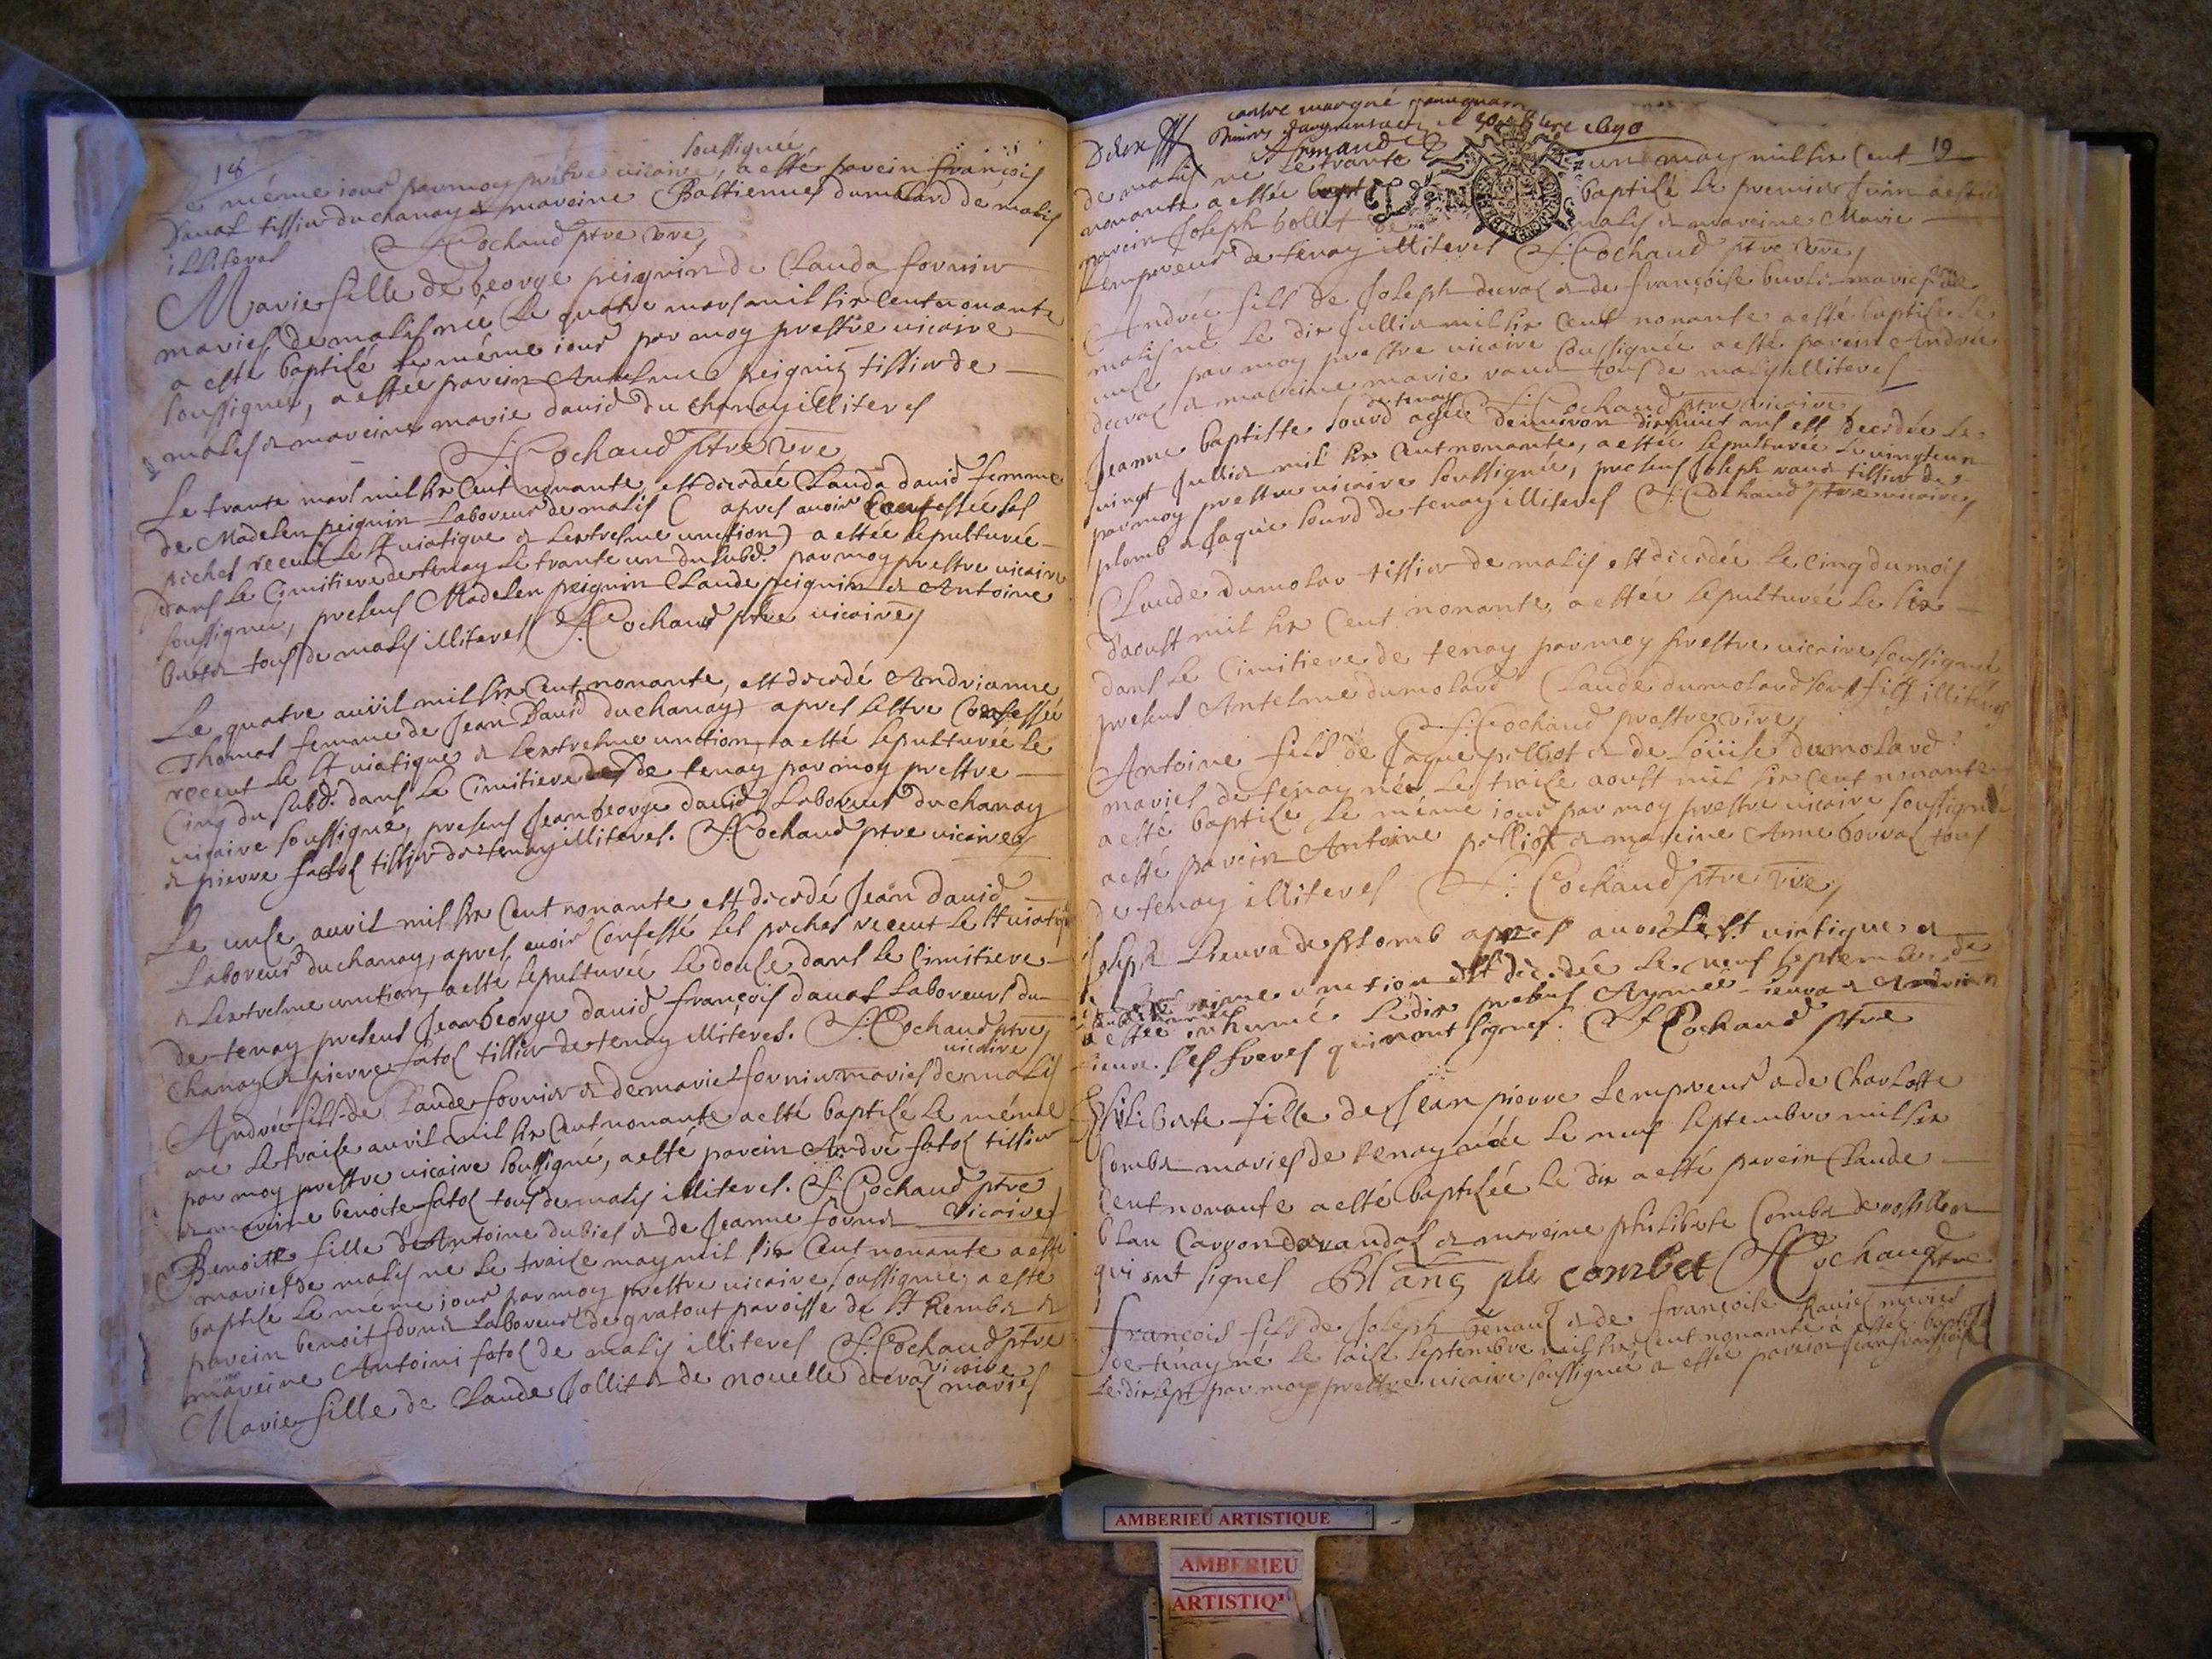 18
soussignée,
Le méme iour par moy pretre vicaire, a esté parein françois
Dauat tissiur du chanay & mareine Bastienne dumolard de malis
illiteres J Cochaud ptre vire
Marie fille de George peignin de Clauda fornier
maries de malis née le quatre mars mil six cent nonante
a esté baptisé le méme iour par moy prestre vicaire
soussigné, a estée parein Antelme peignin tissiur de
malis & mareine marie david du chanay illiteres
J Cochaud ptre vire
Le trante mars mil six cent nonante est decedée Clauda david femme
de Madelen peignin Laboreur de malis ( apres avoir confessée ses
pechés receut le st viatique & lextresme unction) a estée sepulturée
dans le Cimitiere de tenay le trante un du susd. par moy prestre vicaire
soussignée, presens Madelen peignin Claude peignin & Antoine
tous de malis illiteres J Cochaud ptre vicaire
Le quatre avril mil six cent nonante, est decedé Andrianne
Thomas femme de Jean David du chanay) apres sestre Confessée
receut le st viatique & lextresme unction, a esté sepulturée le
Cinq du susd. dans le Cimitiere de tenay par moy prestre
vicaire soussigné, presens Jean George david Laboreur du chanay
& pierre fatol tissiur de tenay illiteres. J Cochaud ptre vicaire
Le unse avril mil six cent nonante est decedé Jean david
Laboreur du chanay, apres avoir Confessé ses pechés receut le st viatique
& lextresme unction, a esté sepulturée le douse dans le Cimitiere
de tenay presens Jean George david, françois dauat Laboreurs du
chanay & pierre fatol tissiur de tenay illiteres. J. Cochaud ptre
vicaire
Andrée fils de Claude fornier & de marie fornier maries de malis
ne le traise avril mil six cent nonante a esté baptisé le méme
par moy prestre vicaire soussigné, a esté parein André fatol tissiur
& mareine benoite fatol tous de malis illiteres. J. Cochaud ptre
vicaire
Benoitte fille de Antoine dubiel & de Jeanne fornier
maries de malis ne le traise may mil six cent nonante a esté
baptisé le méme iour par moy prestre vicaire soussignée, a esté
parein benoit fornier Laboreur de gratout paroisse de st Rembert &
mareine Antoini fatol de malis illiteres J. Cochaud ptre
vicaire
Marie fille de Claude Jollit & de nouelle ducral maries
contre marqué
1690
Armand
19
de malis né le trante un may mil six cent
nonante a estée baptisé le premier Juin a esté
parein Joseph bollet de malis & mareine Marie
Lempereur de tenay illiteres J. Cochaud ptre vire
Andrée fils de Joseph ducral & de françoise maries de
malis né le dix Jullier mil six cent nonante a esté baptisé le
unse par moy prestre vicaire soussignée a esté parein Andrée
ducral & mareine marie vaud tous de malis illiteres
de tenay J Cochaud ptre vicaire
Jeanne baptiste Sourd agée denviron dixhuict ans est decedée le
vingt Jullier mil six cent nonante, a estée sepulturée le vingt un
par moy prestre vicaire soussignée, presens Joseph vaud tissiur de
plomb & Jaque Sourd de tenay illiteres J. Cochaud ptre vicaire
Claude dumolar tissiur de malis est decedée le Cinq du mois
daoust mil six cent nonante, a estée sepulturée le six
dans le Cimitiere de tenay par moy prestre vicaire soussigné,
presens Antelme dumolard Claude dumolard son fils illiteres
J. Cochaud prestre vire
Antoine fils de Jaque pelliot & de Loüise dumolard
maries de tenay née le traise aoust mil six cent nonante
a esté baptisé le méme iour par moy prestre vicaire soussigné
a esté parein Antoine pelliot & mareine Anne borral tous
de tenay illiteres J. Cochaud ptre vire
Joseph Lieura de plomb apres avoir le st viatique &
unction est decedée le neuf septembre
a estée inhumé le dix presens Aymée Lieura &
ses freres qui nont signes. J Cochaud ptre
Philiberte fille de Jean pierre Lempereur & de Charlotte
Combet maries de tenay née le neuf septembre mil six
cent nonante a esté baptisée le dix a esté parein Claude
blan & mareine philiberte Combet de rossillon
qui ont signes Blanc ple combet J Cochaud ptre
françois fils de Joseph & de françoise Raviel maries
de tenay né le saise septembre mil six cent nonante a estée baptisé
le dix sept par moy prestre vicaire soussigné a estée parein Jean françois
AMBERIEU ARTISTIQUE
AMBERIEU
ARTISTIQ